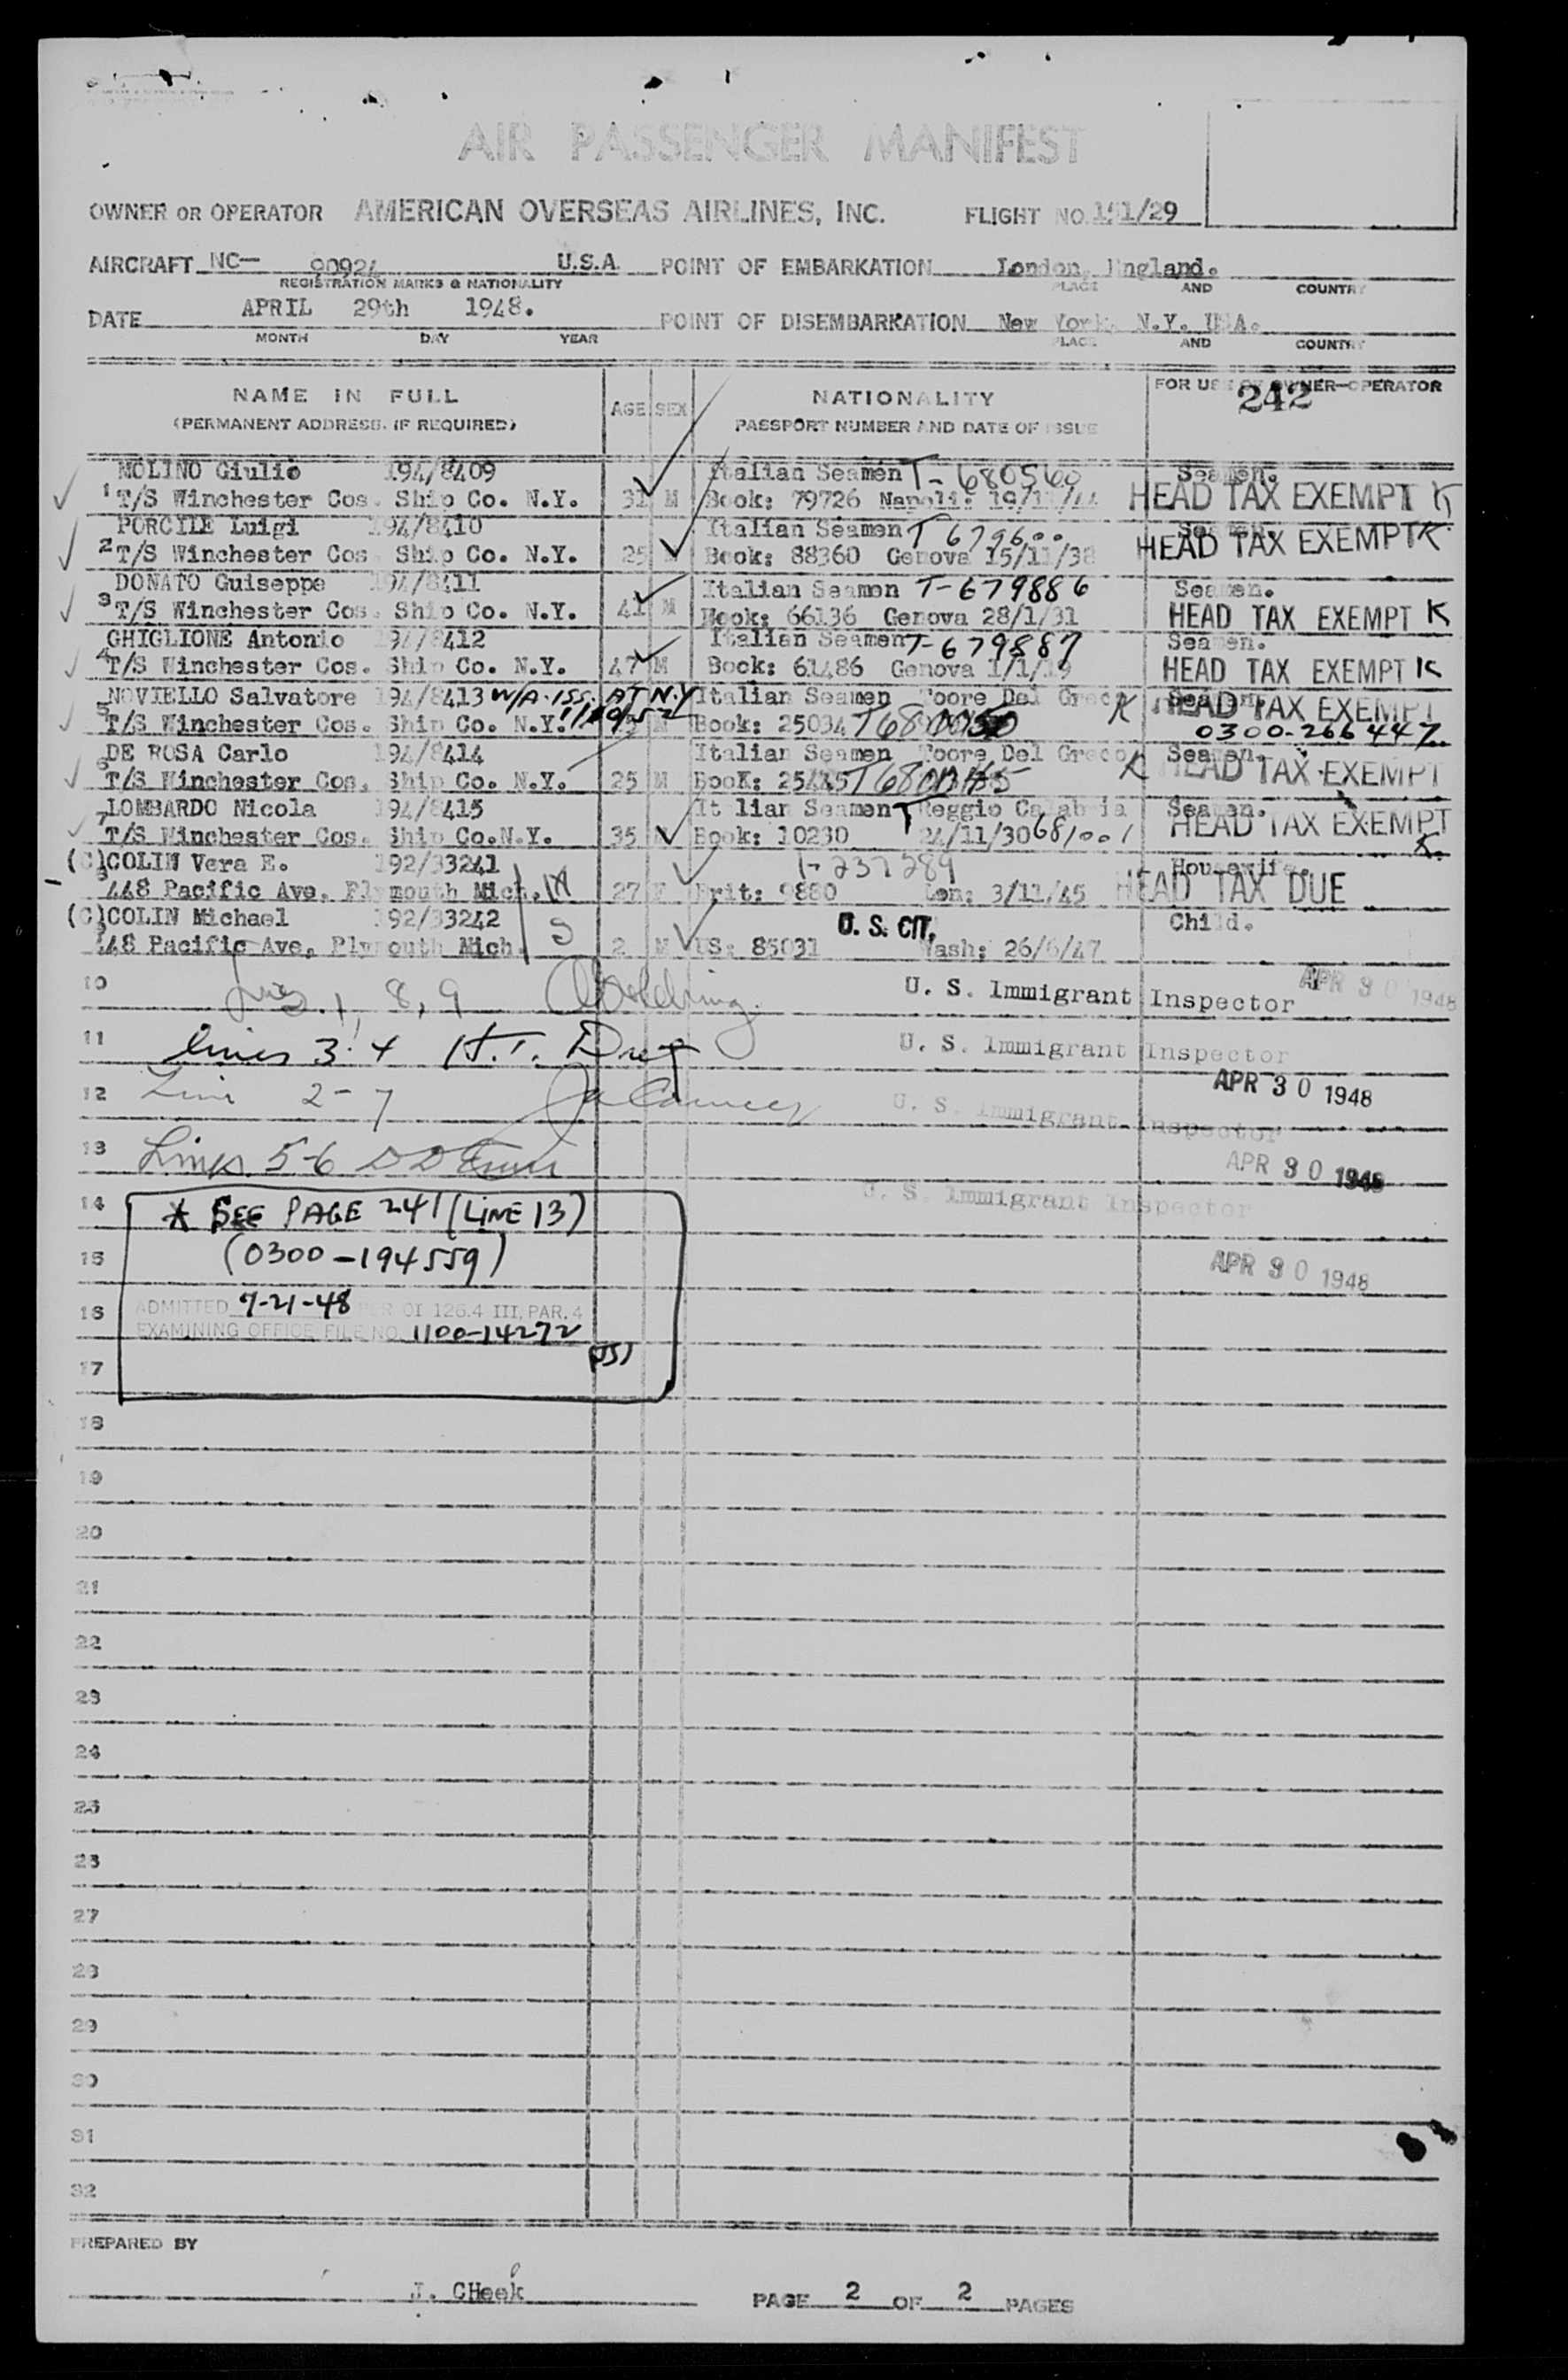 AIR PASSENGER MANIFEST
OWNER OR OPERATOR AMERICAN OVERSEAS AIRLINES, INC. FLIGHT NO. 151/29
AIRCRAFT NC— 90924 U.S.A. POINT OF EMBARKATION London, England.
REGISTRATION MARKS & NATIONALITY PLACE AND COUNTRY
DATE APRIL 29th 1948. POINT OF DISEMBARKATION New York, N.Y. USA.
MONTH DAY YEAR PLACE AND COUNTRY
NAME IN FULL AGE SEX NATIONALITY FOR USE OF OWNER—OPERATOR
(PERMANENT ADDRESS, IF REQUIRED) PASSPORT NUMBER AND DATE OF ISSUE 242
MOLINO Giulio 194/8409 Italian Seamen T-680560 Seamen.
1 T/S Winchester Cos. Ship Co. N.Y. 31 M Book: 79726 Napoli: HEAD TAX EXEMPT K
PORCILE Luigi 194/8410 Italian Seamen T 679600 Seamen.
2 T/S Winchester Cos. Ship Co. N.Y. 25 M Book: 88360 Genova 15/11/38 HEAD TAX EXEMPT K
DONATO Guiseppe 194/8411 Italian Seamen T-679886 Seamen.
3 T/S Winchester Cos. Ship Co. N.Y. 41 M Book: 66136 Genova 28/1/31 HEAD TAX EXEMPT K
GHIGLIONE Antonio 194/8412 Italian Seamen T-679887 Seamen.
4 T/S Winchester Cos. Ship Co. N.Y. 47 M Book: 61486 Genova 1/1/19 HEAD TAX EXEMPT K
NOVIELLO Salvatore 194/8413 W/A ISS. AT N.Y Italian Seamen Toore Del Greco K Seamen. HEAD TAX EXEMPT
5 T/S Winchester Cos. Ship Co. N.Y. M Book: 25034 0300-266447
DE ROSA Carlo 194/8414 Italian Seamen Toore Del Greco Seamen.
6 T/S Winchester Cos. Ship Co. N.Y. 25 M Book: K HEAD TAX EXEMPT
LOMBARDO Nicola 194/8415 Italian Seamen T Reggio Calabria Seamen.
7 T/S Winchester Cos. Ship Co.N.Y. 35 M Book: 10230 24/11/30 681001 HEAD TAX EXEMPT K
(C) COLIN Vera E. 192/33241 T-237289 Housewife.
8 448 Pacific Ave, Plymouth Mich. 27 F Brit: 9880 Lon: 3/11/45 HEAD TAX DUE
(C) COLIN Michael 192/33242 U.S. CIT. Child.
9 448 Pacific Ave, Plymouth Mich. 2 M US: 85031 Wash: 26/6/47
10 Lines 1, 8, 9 U. S. Immigrant Inspector APR 30 1948
11 Lines 3-4 H.T. U. S. Immigrant Inspector
12 Line 2-7 U. S. Immigrant Inspector APR 30 1948
13 Lines 5-6 APR 30 1948
14 * SEE PAGE 241 (LINE 13) U. S. Immigrant Inspector
15 (0300-194559) APR 30 1948
16 ADMITTED 7-21-48 PER OI 126.4 III, PAR. 4
EXAMINING OFFICE FILE NO. 1100-14272
17
18
19
20
21
22
23
24
25
26
27
28
29
30
31
32
PREPARED BY
J. CHeek PAGE 2 OF 2 PAGES